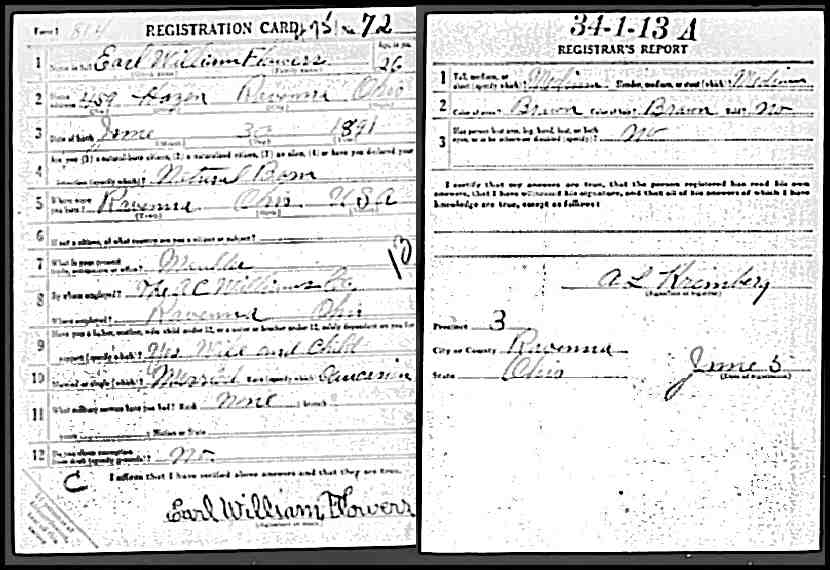 Form 1 REGISTRATION CARD No. 72
1 Name in full Earl William Flowers Age, in yrs. 26
(Given name) (Family name)
2 Home address 459 Hazen Ravenna Ohio
3 Date of birth June 30 1891
(Month) (Day) (Year)
Are you (1) a natural-born citizen, (2) a naturalized citizen, (3) an alien, (4) or have you declared your
4 intention (specify which)? Natural Born
5 Where were you born? Ravenna Ohio USA
(Town) (State) (Nation)
6 If not a citizen, of what country are you a citizen or subject?
7 What is your present trade, occupation, or office? 13
8 By whom employed? The A C Williams Co
Where employed? Ravenna Ohio
Have you a father, mother, wife, child under 12, or a sister or brother under 12, solely dependent on you for
9 support (specify which)? Yes Wife and Child
10 Married or single (which)? Married Race (specify which)? Caucasian
11 What military service have you had? Rank None ; branch
years ; Nation or State
12 Do you claim exemption from draft (specify grounds)? No
C I affirm that I have verified above answers and that they are true.
Earl William Flowers
(Signature or mark)
34-1-13 A
REGISTRAR'S REPORT
1 Tall, medium, or short (specify which)? Medium Slender, medium, or stout (which)? Medium
2 Color of eyes? Brown Color of hair? Brown Bald? No
3 Has person lost arm, leg, hand, foot, or both eyes, or is he otherwise disabled (specify)? No
I certify that my answers are true, that the person registered has read his own
answers, that I have witnessed his signature, and that all of his answers of which I have
knowledge are true, except as follows:
A L Kremberg
(Signature of registrar)
Precinct 3
City or County Ravenna
State Ohio June 5
(Date of registration)